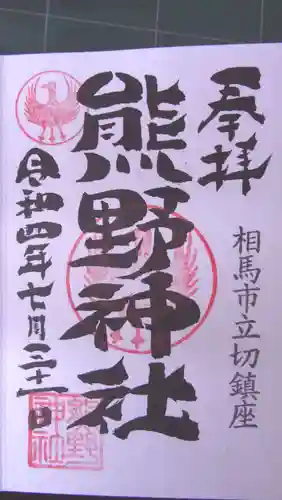 奉拝
相馬市立切鎮座
熊野神社
令和四年七月三十一日
熊野
神社